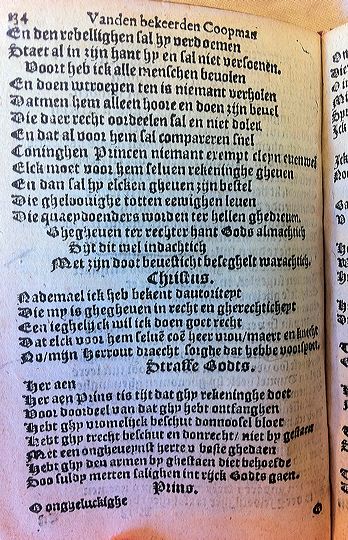 134 Vanden bekeerden Coopman
En den rebellighen sal hy verdoemen
Staet al in zijn hant hy en sal niet versoenen.
Voort heb ick alle menschen bevolen
En doen wtroepen ten is niemant verholen
Datmen hem alleen hoore en doen zijn bevel
Die daer recht oordeelen sal en niet dolen
En dat al voor hem sal compareren snel
Coninghen Princen niemant exempt cleyn evenwel
Elck moet voor hem selven rekeninghe gheven
En dan sal hy elcken gheven zijn bestel
Die ghelovighe totten eewighen leven
Die quaepdoenders worden ter hellen ghedreven.
Ghegheven ter rechter hant Gods almachtich
Zijt dit wel indachtich
Met zijn doot bevesticht beseghelt warachtich.
Christus.
Nademael ick heb bekent dautoriteyt
Die my is ghegheven in recht en gherechticheyt
Een ieghelijck wil ick doen goet recht
Dat elck voor hem selvē coē heer vrou/ maert en knecht
No/ mijn Herrout draecht sorghe dat hebbe voortspoet.
Straffe Godts.
Her aen
Her aen Prins tis tijt dat ghy rekeninghe doet
Voor doordeel van dat ghy hebt ontfanghen
Hebt ghy vromelijck beschut donnoosel bloet
Hebt ghy trecht beschut en donrecht/ niet by gestaen
Met een ongheveynst herte v bosie ghedaen
Hebt ghy den armen by ghestaen diet behoefde
Soo suldy metten salighen int rijck Godts gaen.
Prins.
O ongheluckighe